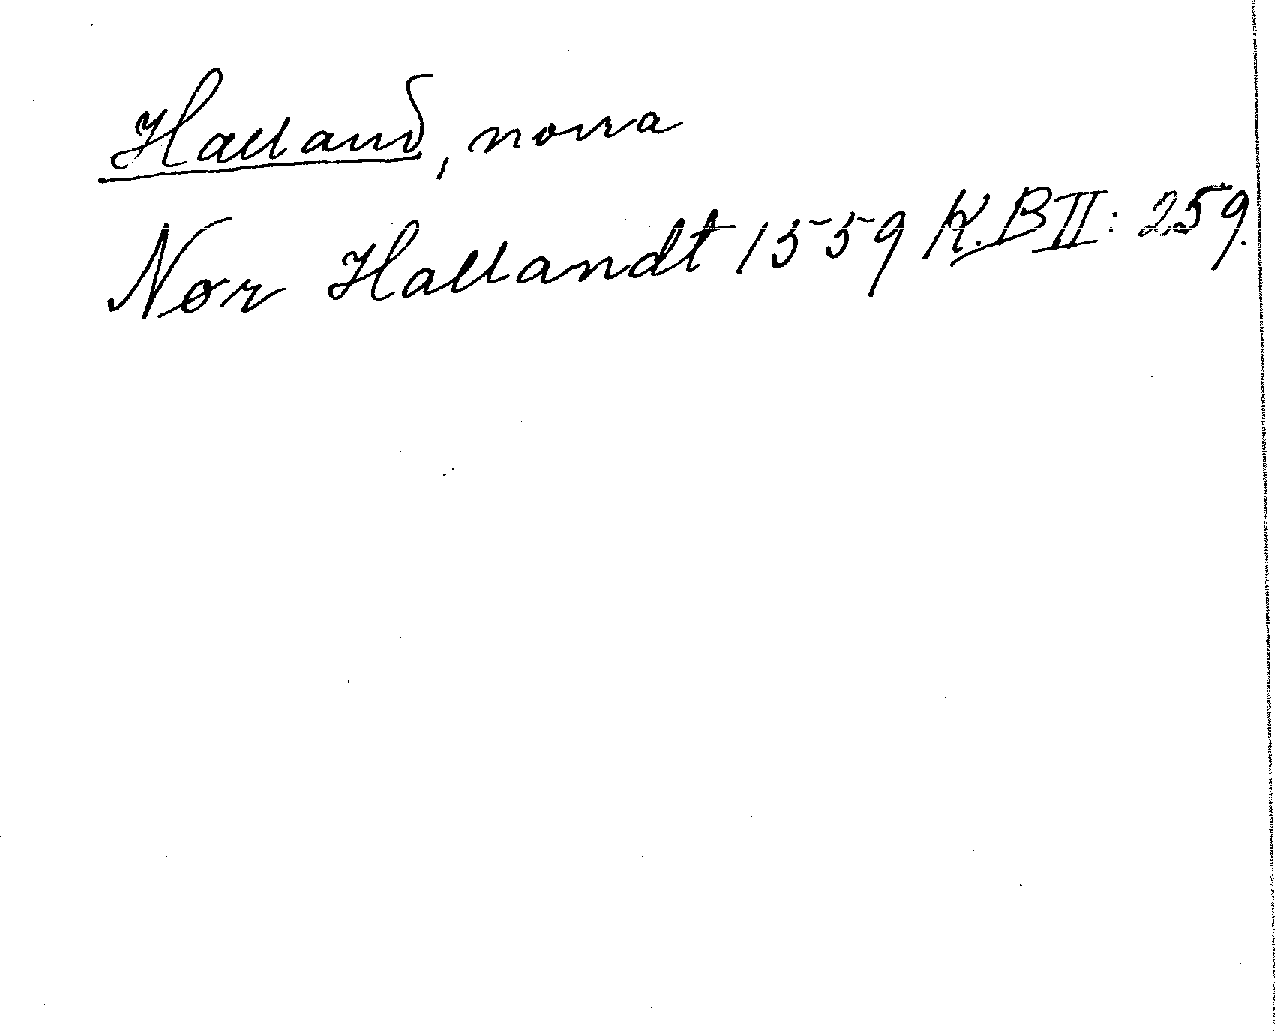 Halland, norra
Nør Hallandt 1559 K.B II: 259.